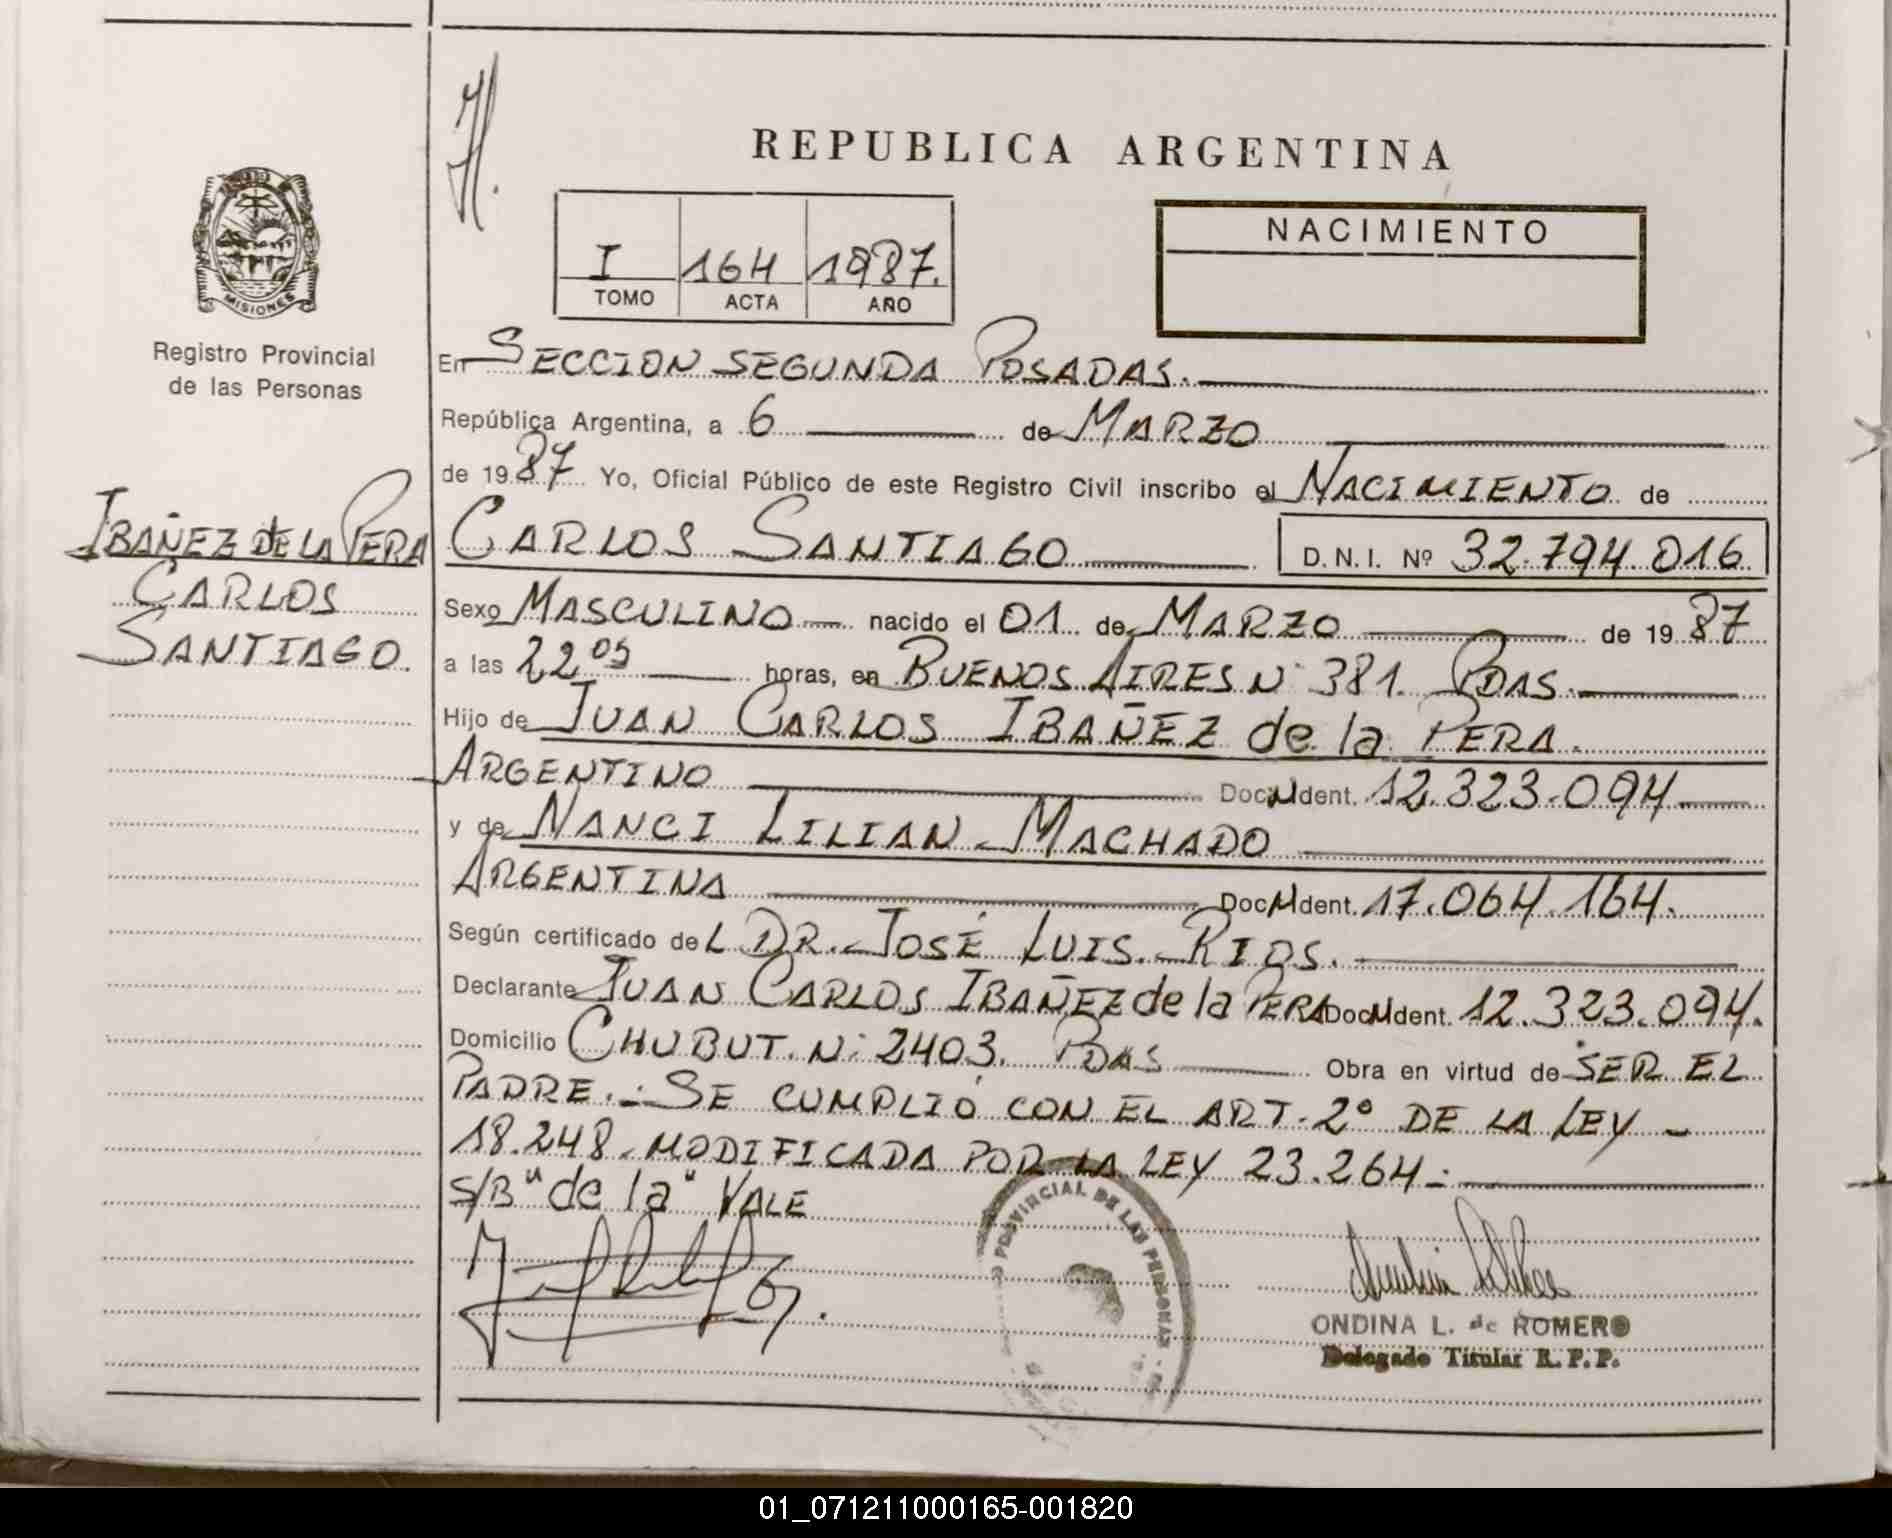 REPUBLICA ARGENTINA
I 164 1987.
TOMO ACTA AÑO
NACIMIENTO
MISIONES
Registro Provincial
de las Personas
IBAÑEZ DE LA PERA
CARLOS
SANTIAGO.
En SECCION SEGUNDA POSADAS.
República Argentina, a 6 de MARZO
de 1987 Yo, Oficial Público de este Registro Civil inscribo el NACIMIENTO de
CARLOS SANTIAGO D.N.I. Nº 32.794.016
Sexo MASCULINO nacido el 01 de MARZO de 1987
a las 22 05 horas, en BUENOS AIRES Nº 381. PDAS.
Hijo de JUAN CARLOS IBAÑEZ de la PERA.
ARGENTINO Doc. Ident. 12.323.094
y de NANCI LILIAN MACHADO
ARGENTINA Doc. Ident. 17.064.164.
Según certificado del DR. JOSÉ LUIS RIOS.
Declarante JUAN CARLOS IBAÑEZ de la PERA Doc. Ident. 12.323.094.
Domicilio CHUBUT. Nº 2403. PDAS Obra en virtud de SER EL
PADRE.- SE CUMPLIÓ CON EL ART. 2º DE LA LEY
18.248. MODIFICADA POR LA LEY 23.264.-
S/B "de la" VALE
PROVINCIAL DE LAS PERSONAS
ONDINA L. de ROMERO
Delegado Titular R.P.P.
01_071211000165-001820